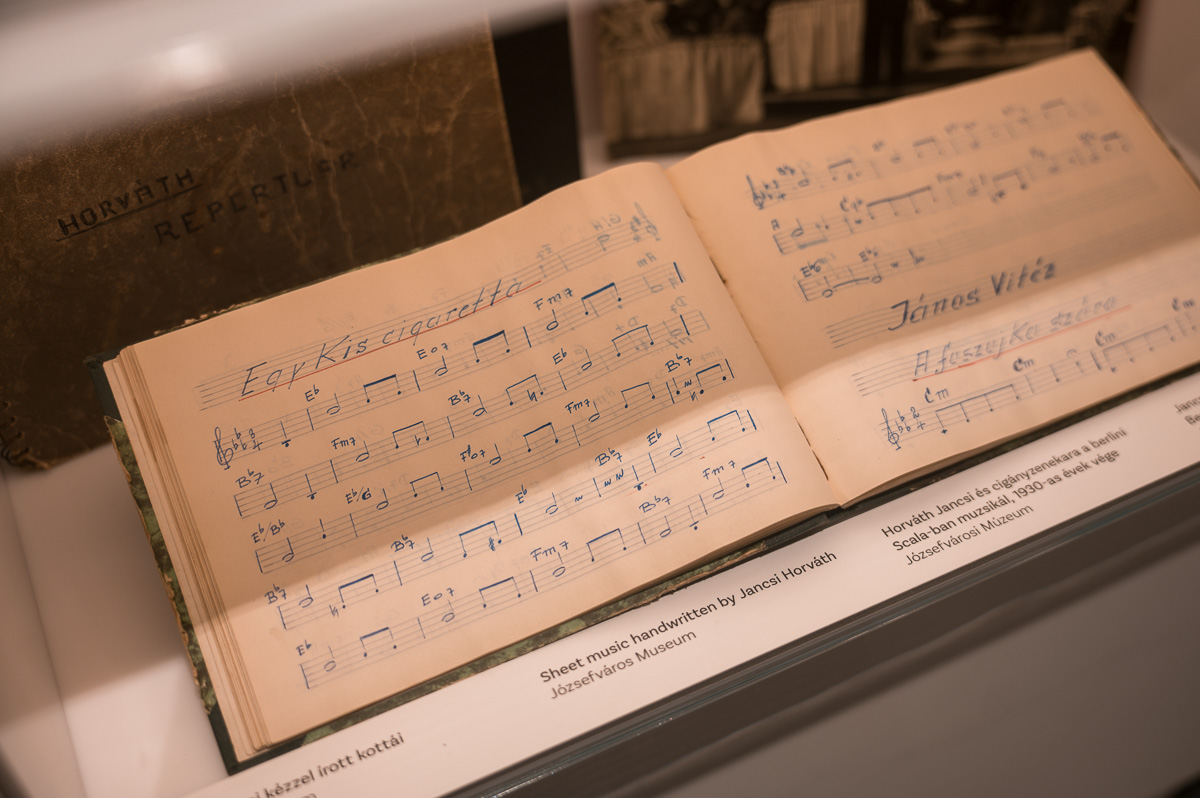 HORVÁTH
REPERTUÁR
Egy Kis cigaretta
Eb Eo7 Fm7
Bb7 Fm7 Bb7 Eb
Eb/Bb Eb/G F#o7 Fm7 Bb7
Bb7 Bb7 Eb Bb7 Eb
Eb Eo7 Fm7 Bb7 Fm7
János Vitéz
A faszaj Ka szára
Cm Cm Cm Cm
kézzel írott kottái
Sheet music handwritten by Jancsi Horváth
Józsefváros Museum
Horváth Jancsi és cigányzenekara a berlini
Scala-ban muzsikál, 1930-as évek vége
Józsefvárosi Múzeum